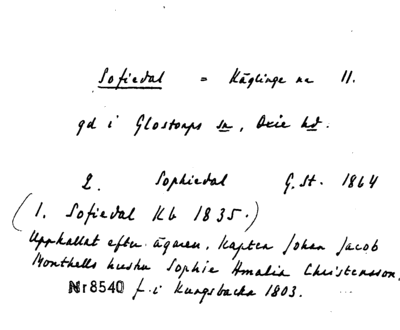 Sofiedal = Käglinge nr 11.
gd i Glostorps sn, Oxie hd.
2. Sophiedal G.St. 1864
(1. Sofiedal Kb 1835.)
Uppkallat efter ägaren, kapten Johan Jacob
Monthells hustru Sophie Amalia Christensson,
Nr 8540 f. i Kungsbacka 1803.